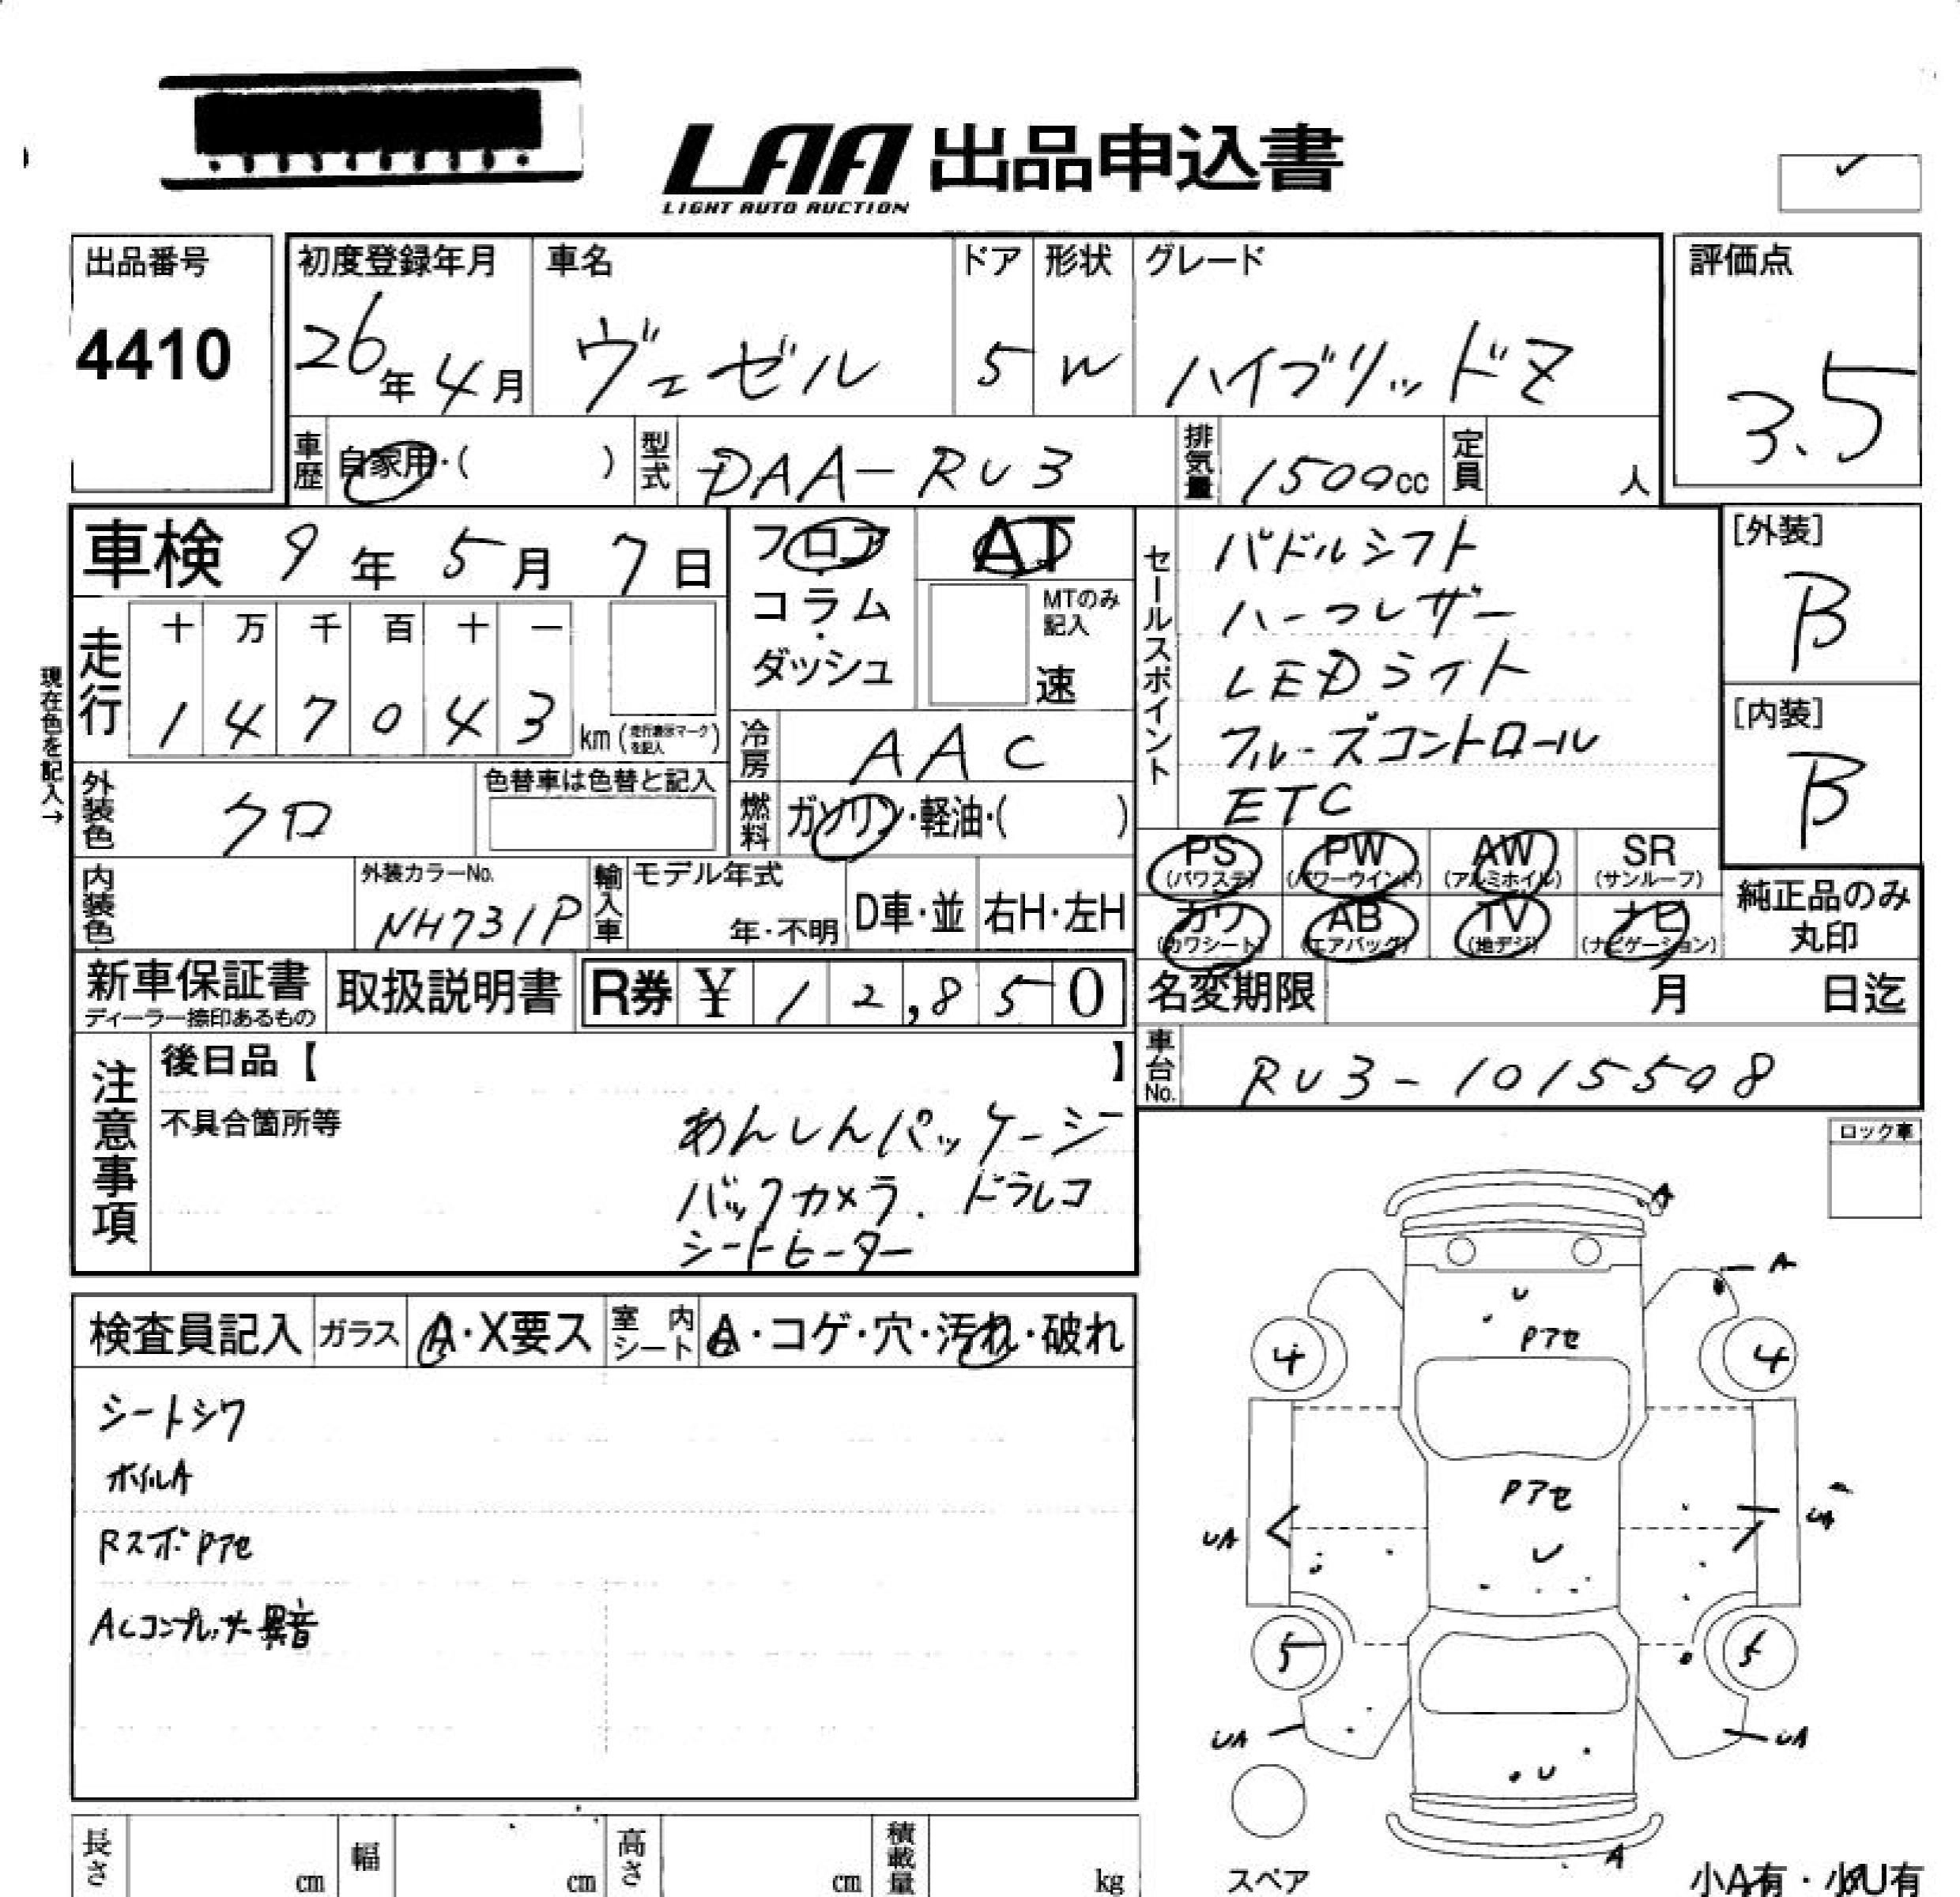 LAA 出品申込書
LIGHT AUTO AUCTION
出品番号
4410
初度登録年月
26年 4月
車名
ヴェゼル
ドア
5
形状
W
グレード
ハイブリッドZ
評価点
3.5
車歴 自家用・( )
型式 DAA-RU3
排気量 1500cc
定員 人
車検 9年 5月 7日
フロア・コラム・ダッシュ
AT
MTのみ記入
速
セールスポイント
パドルシフト
ハーフレザー
LEDライト
クルーズコントロール
ETC
[外装]
B
[内装]
B
現在色を記入→
走行
十 万 千 百 十 一
1 4 7 0 4 3 km
冷房 AAC
外装色 クロ
色替車は色替と記入
燃料 ガソリン・軽油・( )
内装色
外装カラーNo.
NH731P
輸入車
モデル年式
年・不明
D車・並
右H・左H
PS (パワステ)
PW (パワーウインド)
AW (アルミホイル)
SR (サンルーフ)
カワ (カワシート)
AB (エアバッグ)
TV (地デジ)
ナビ (ナビゲーション)
純正品のみ丸印
新車保証書
ディーラー捺印あるもの
取扱説明書
R券 ¥ 12,850
名変期限 月 日迄
車台No. RU3-1015508
注意事項
後日品【 】
不具合箇所等
あんしんパッケージ
バックカメラ. ドラレコ
シートヒーター
ロック車
検査員記入
ガラス A・X要ス
室内シート A・コゲ・穴・汚れ・破れ
シートシワ
ホイルA
RスポPアセ
ACコンプレッサー異音
A
A
U
Pアセ
4
4
Pアセ
UA
U
UA
5
5
UA
UA
U
A
スペア
小A有・小U有
長さ cm
幅 cm
高さ cm
積載量 kg